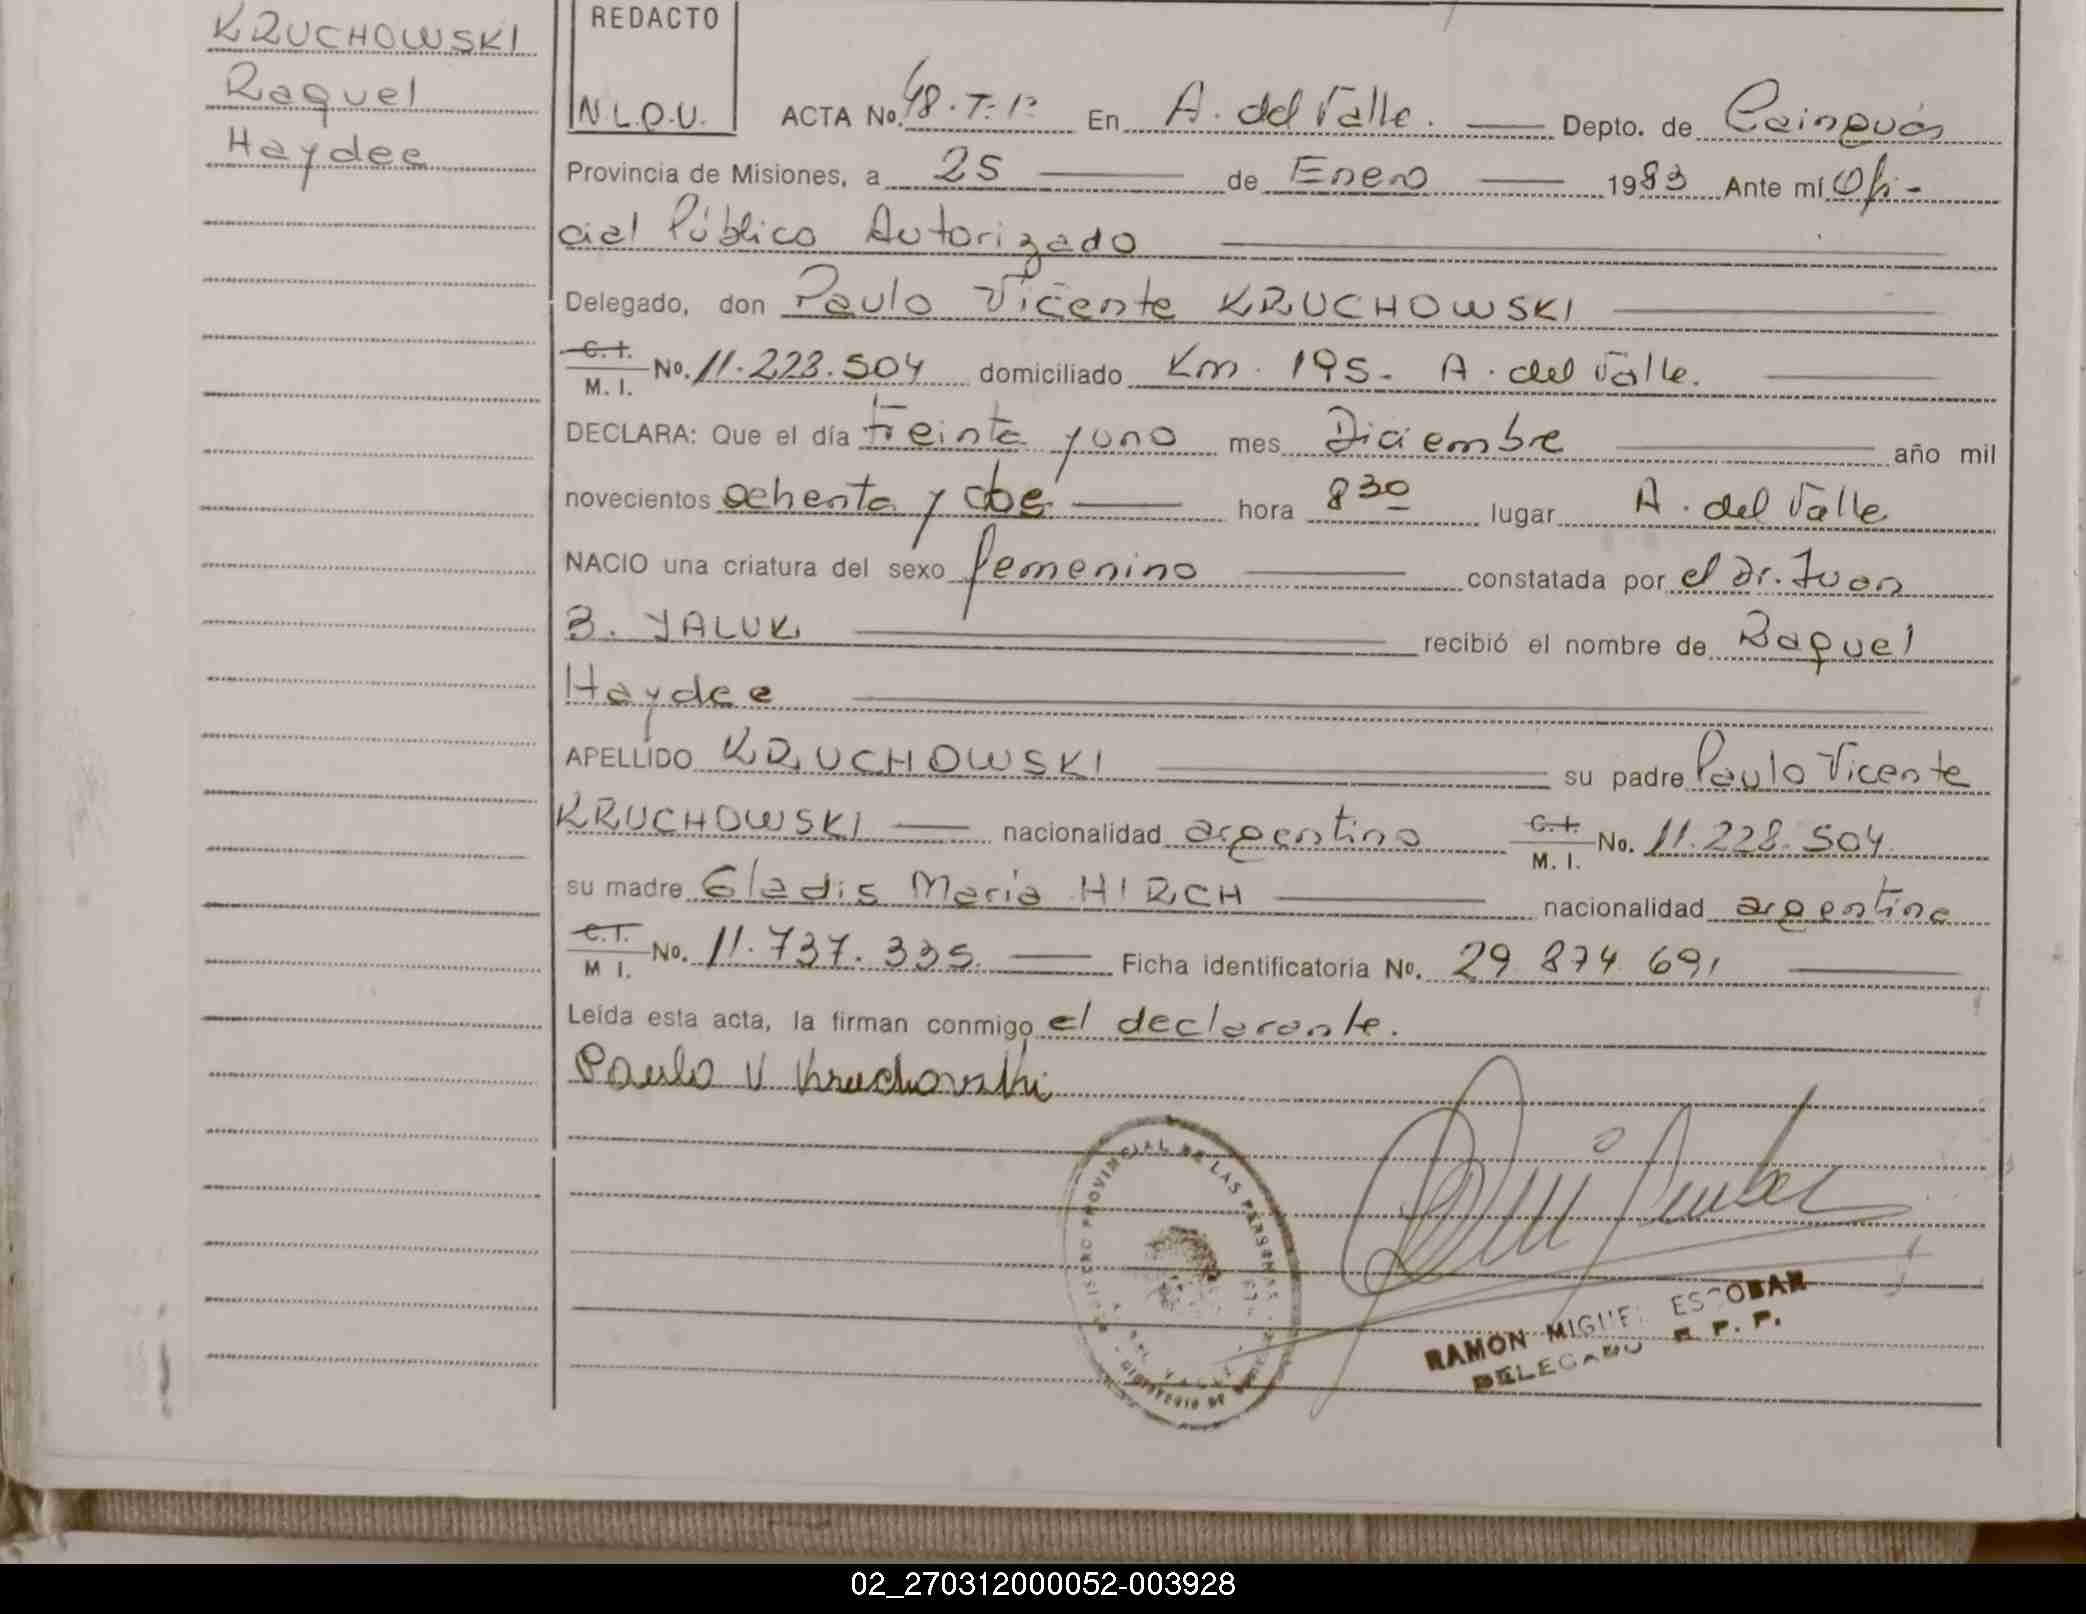 KRUCHOWSKI
Raquel
Haydee
REDACTO
N.L.O.U.
ACTA No. 48.T.1º En A. del Valle. Depto. de Cainguás
Provincia de Misiones, a 25 de Enero 1983 Ante mí Ofi-
cial Público Autorizado
Delegado, don Paulo Vicente KRUCHOWSKI
C.I. M. I. No. 11.223.504 domiciliado Km. 195. A. del Valle.
DECLARA: Que el día treinta y uno mes Diciembre año mil
novecientos ochenta y dos hora 8 30 lugar A. del Valle
NACIO una criatura del sexo femenino constatada por el Dr. Juan
B. YALUK recibió el nombre de Raquel
Haydee
APELLIDO KRUCHOWSKI su padre Paulo Vicente
KRUCHOWSKI nacionalidad argentino C.I. M. I. No. 11.223.504
su madre Gladis María HIRCH nacionalidad argentina
C.I. M I. No. 11.737.335. Ficha identificatoria No. 29 874 691
Leída esta acta, la firman conmigo el declarante.
Paulo V Kruchowski
REGISTRO PROVINCIAL DE LAS PERSONAS
RAMON MIGUEL ESCOBAR
DELEGADO R. P. P.
02_270312000052-003928